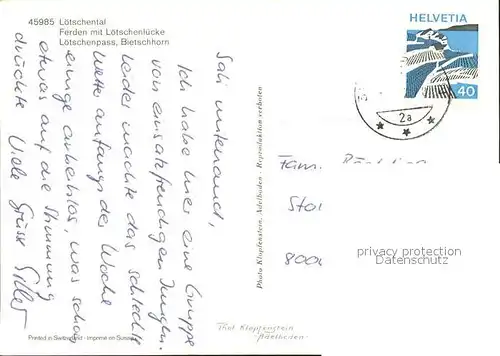 45985 Lötschental
Ferden mit Lötschenlücke
Lötschenpass, Bietschhorn
Sali mitenand,
Ich habe hier eine Gruppe
von einsatzfreudigen Jungen.
Leider machte das schlechte
Wetter anfangs der Woche
einige arbeitslos, was schon
etwas auf die Stimmung
drückte. Viele Grüsse
Printed in Switzerland - Imprimé en Suisse
Photo Klopfenstein, Adelboden - Reproduktion verboten
HELVETIA
40
2a
Fam.
800
privacy protection
Datenschutz
Phot Klopfenstein
Adelboden